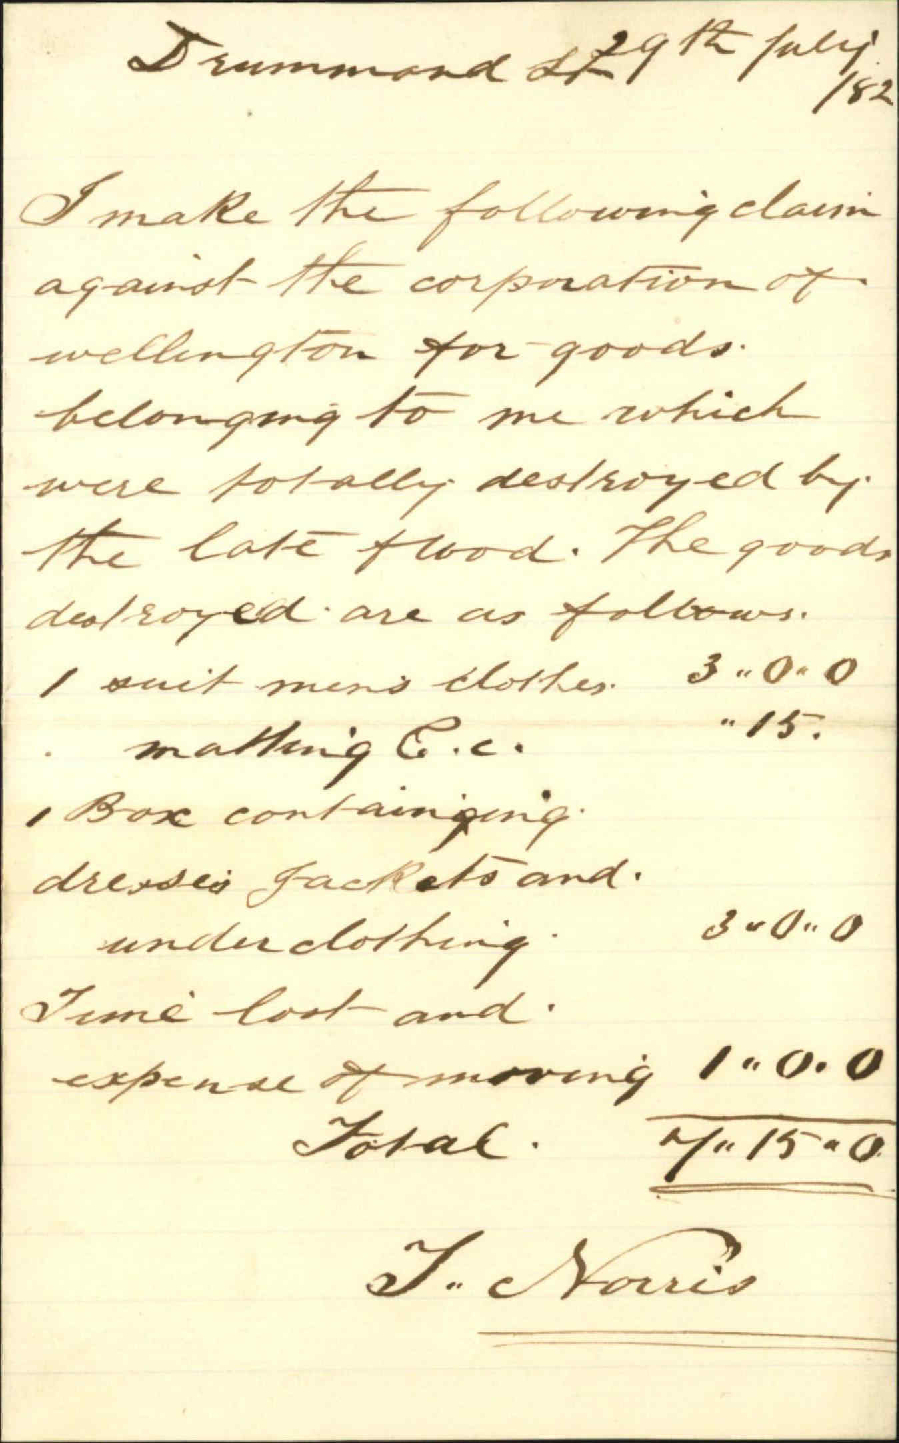 Drummond St 29th July
/82
I make the following claim
against the corporation of
wellington for goods
belonging to me which
were totally destroyed by
the late flood. The goods
destroyed are as follows.
1 suit mens clothes. 3"0"0
matting E.c. "15.
1 Box containging
dresses Jackets and.
underclothing. 3"0"0
Time lost and.
expense of moving 1"0.0
Total. 7"15"0
T. Norris